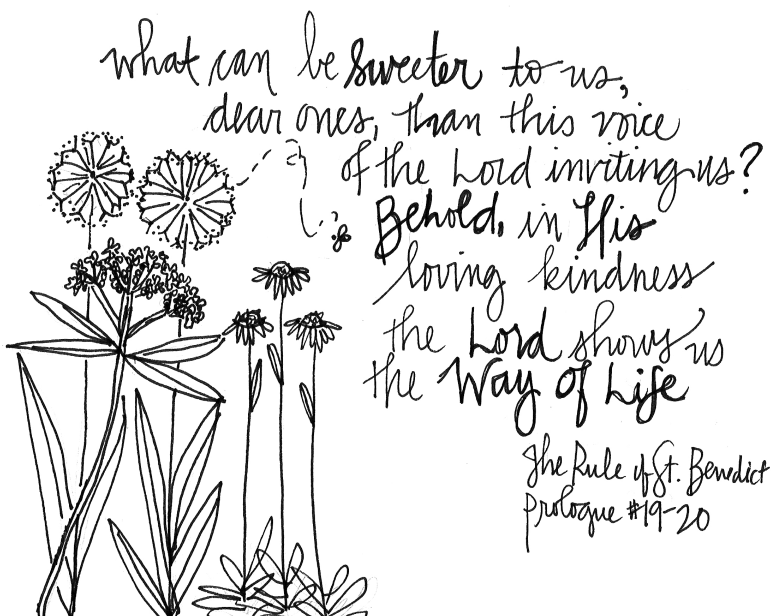 what can be sweeter to us,
dear ones, than this voice
of the Lord inviting us?
Behold, in His
loving kindness
the Lord shows us
the Way of Life
The Rule of St. Benedict
Prologue #19-20